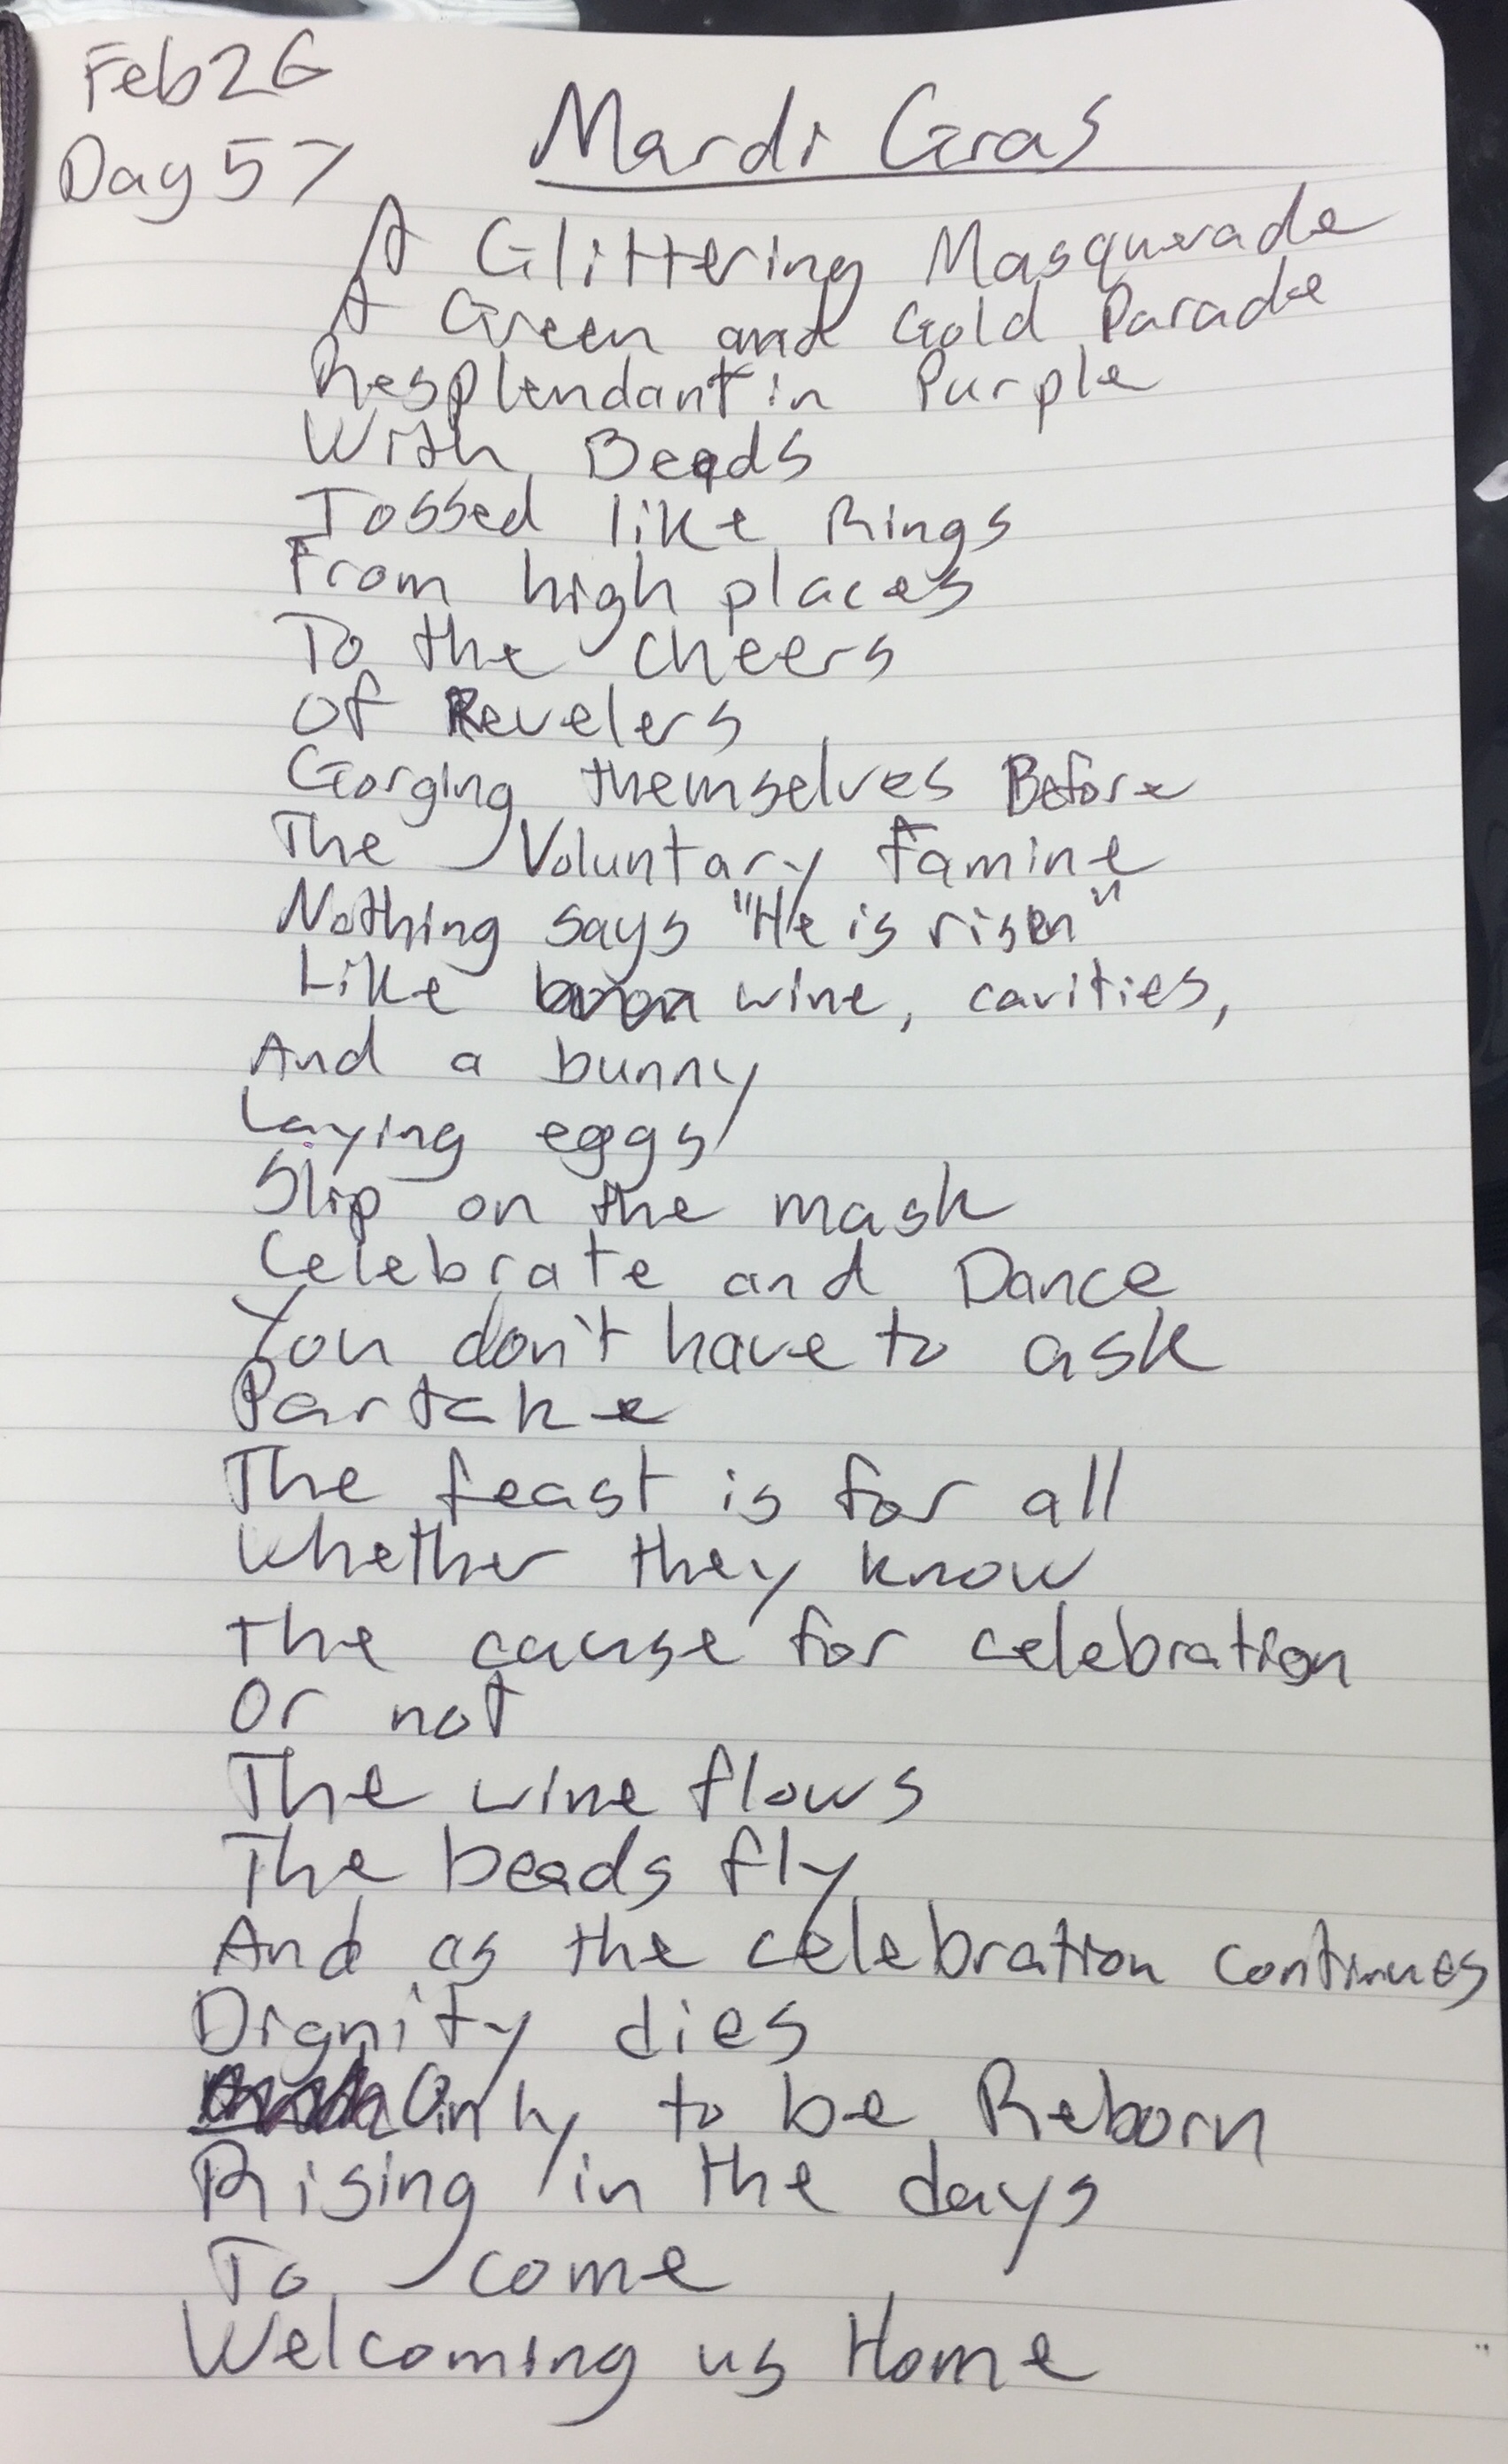 Feb 26
Day 57
Mardi Gras
A Glittering Masquerade
A Green and Gold Parade
Resplendant in Purple
With Beads
Tossed like Rings
From high places
To the cheers
Of Revelers
Gorging themselves Before
The Voluntary Famine
Nothing says "He is risen"
Like wine, cavities,
And a bunny
Laying eggs
Slip on the mask
Celebrate and Dance
You don't have to ask
Partake
The feast is for all
Whether they know
the cause for celebration
Or not
The wine flows
The beads fly
And as the celebration continues
Dignity dies
Only to be Reborn
Rising in the days
To come
Welcoming us Home